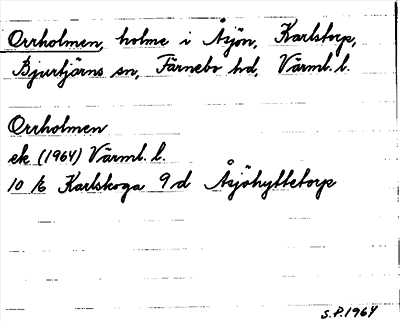 Orrholmen, holme i Åsjön, Karlstorp,
Bjurtjärns sn, Färnebo hd, Värml. l.
Orrholmen
ek (1964) Värml. l.
10 /6 Karlskoga 9 d Åsjöhyttetorp
S.P. 1964